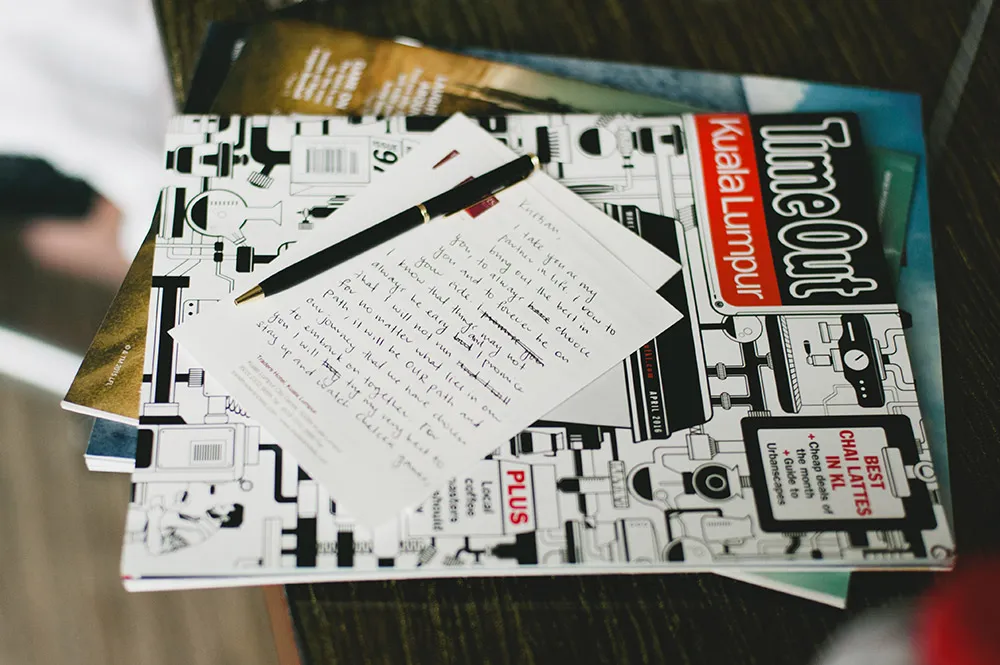 Time Out
Kuala Lumpur
I take you as my
partner in life, I vow to
bring out the best in
you, to always choose
you and to forever be on
your side.
I know that things may not
always be easy I promise
that I will not run
for no matter what lies in our
path, it will be OUR path and
our journey that we have chosen
to embark on together. For
you I will try my very best to
stay up and watch Chelsea games.
APRIL 2016
BEST
CHAI LATTES
IN KL
+ Cheap deals of
the month
+ Guide to
Urbanscapes
PLUS
Local
coffee
should